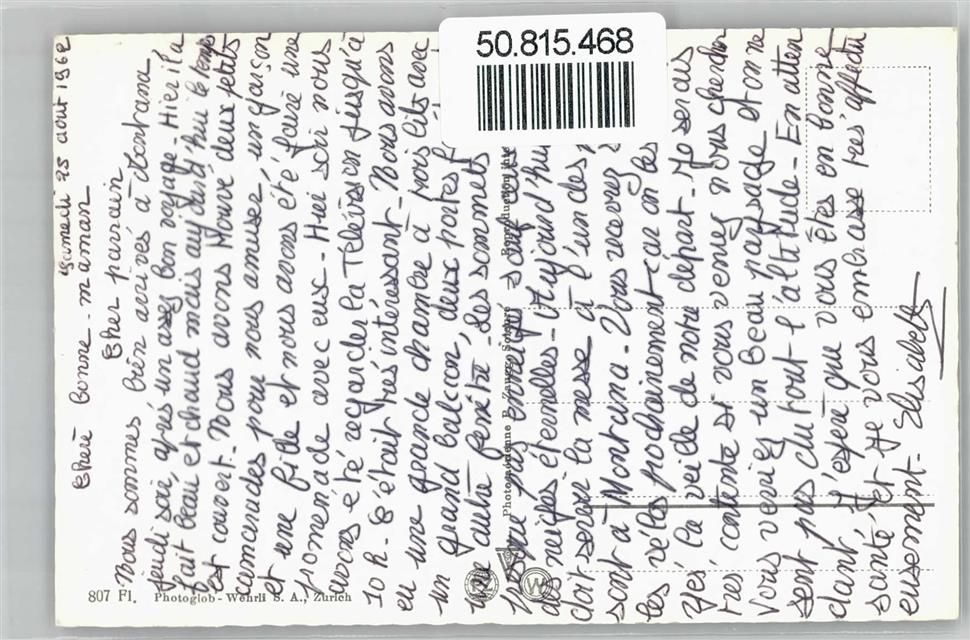 50.815.468
Samedi 25 août 1962
Cheré bonne-maman
Cher parrain
Nous sommes bien arrivés à Montana
jeudi soir, après un assez bon voyage. Hier il a
fait beau et chaud mais aujourd'hui le temps
est couvert. Nous avons trouvé deux petits
camarades pour nous amuser, un garçon
et une fille et nous avons été faire une
promenade avec eux. Hier soir nous
avons été regarder la Télévision jusqu'à
10 h. C'était très intéressant. Nous avons
eu une grande chambre à trois lits avec
un grand balcon, deux portes
une autre fenêtre. Les sommets
neiges éternelles. Aujourd'hui
doit servir la messe à l'un des
sont à Montana. Vous recevrez
les prochainement car on les
la veille de notre départ. Je serais
très contente si vous veniez nous chercher
Vous verriez un beau paysage et on ne
sent pas du tout l'altitude. En atten
dant, j'espère que vous êtes en bonne
santé et je vous embrasse très affectu
eusement. Elisabeth
807 Fl. Photoglob - Wehrli S. A., Zürich